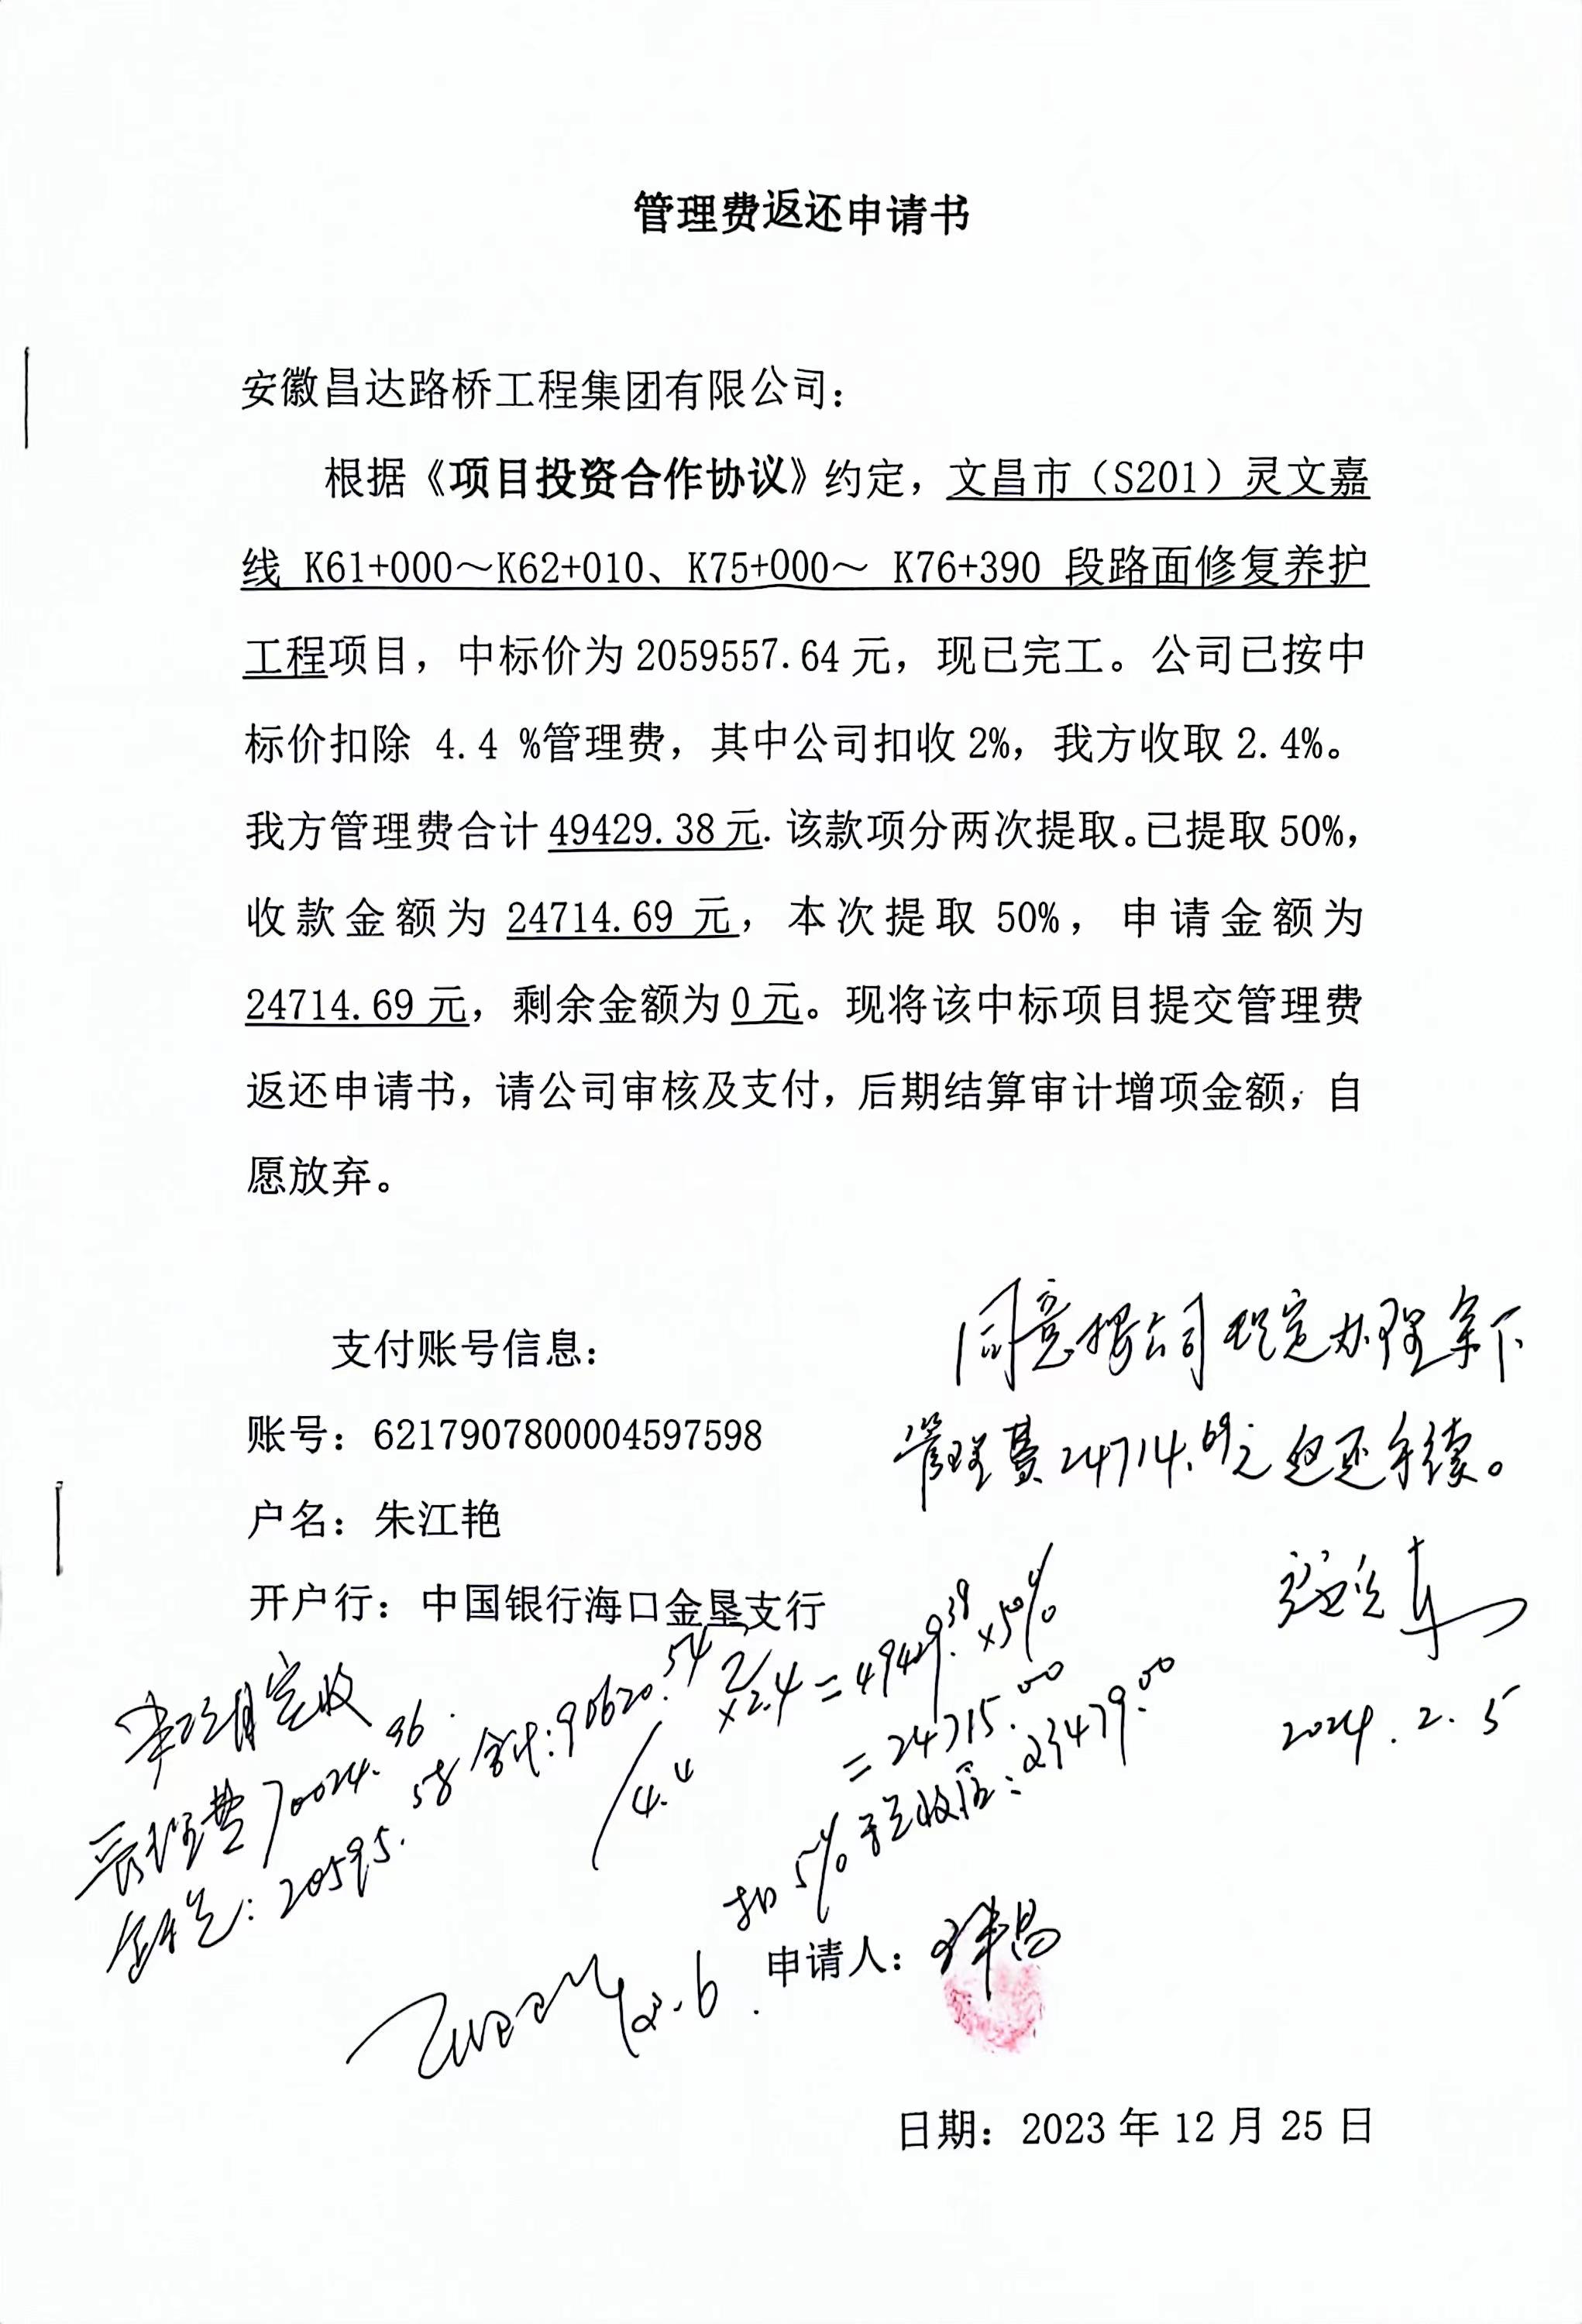 管理费返还申请书
安徽昌达路桥工程集团有限公司：
根据《项目投资合作协议》约定，文昌市（S201）灵文嘉
线 K61+000～K62+010、K75+000～ K76+390 段路面修复养护
工程项目，中标价为 2059557.64 元，现已完工。公司已按中
标价扣除 4.4 %管理费，其中公司扣收 2%，我方收取 2.4%。
我方管理费合计 49429.38 元. 该款项分两次提取。已提取 50%，
收款金额为 24714.69 元，本次提取 50%，申请金额为
24714.69 元，剩余金额为 0 元。现将该中标项目提交管理费
返还申请书，请公司审核及支付，后期结算审计增项金额，自
愿放弃。
支付账号信息：
账号：6217907800004597598
户名：朱江艳
开户行：中国银行海口金垦支行
同意按公司规定办理余下
管理费24714.69元返还手续。
2024.2.5
本项目实收
管理费70024.96
合计：90620.54
/4.4
×2.4=49429.38×50%
=24715.00
20595.58
扣5% 后：23479.00
申请人：
日期：2023 年 12 月 25 日